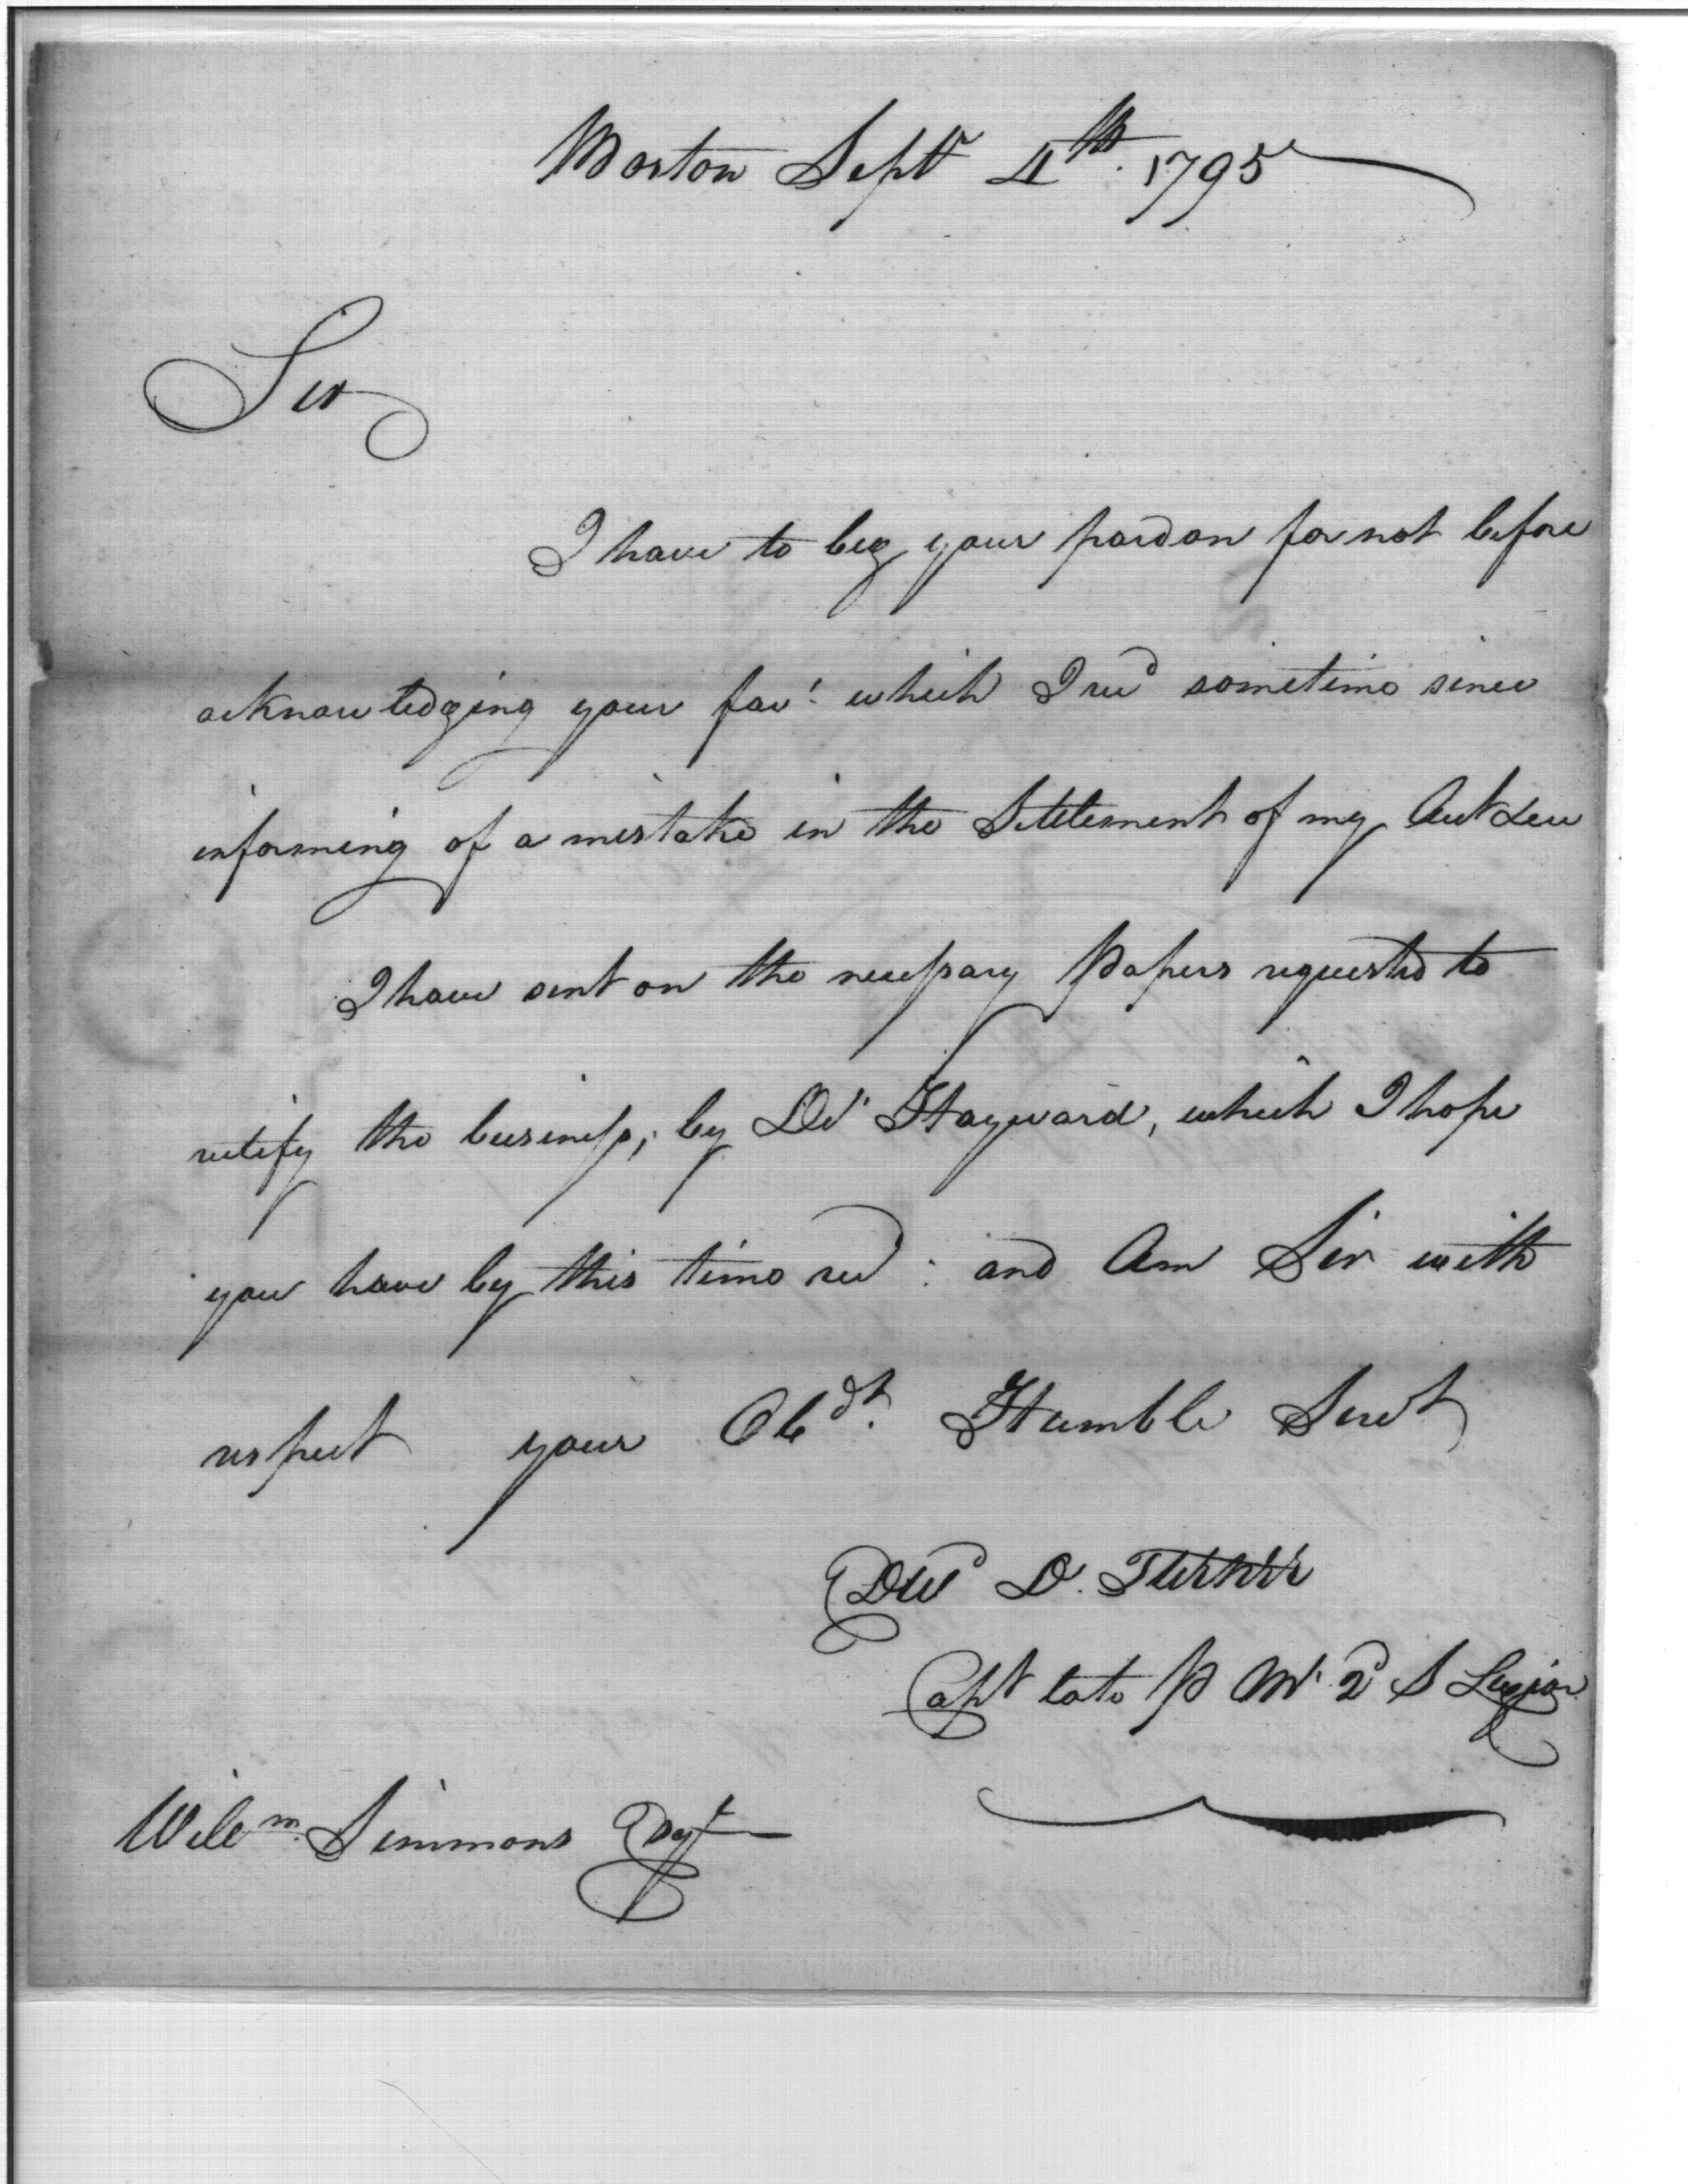 Boston Sept 4th. 1795
Sir
I have to beg your pardon for not before
acknowledging your favr. which I recd sometime since
informing of a mistake in the Settlement of my Acct
I have sent on the necessary Papers requested to
rectify the business, by Dr. Hayward, which I hope
you have by this time recd: and Am Sir with
respect your Obdt. Humble Servt
Edwd D. Turner
Capt late P Mr. 2d S Legion
Willm. Simmons Esqr